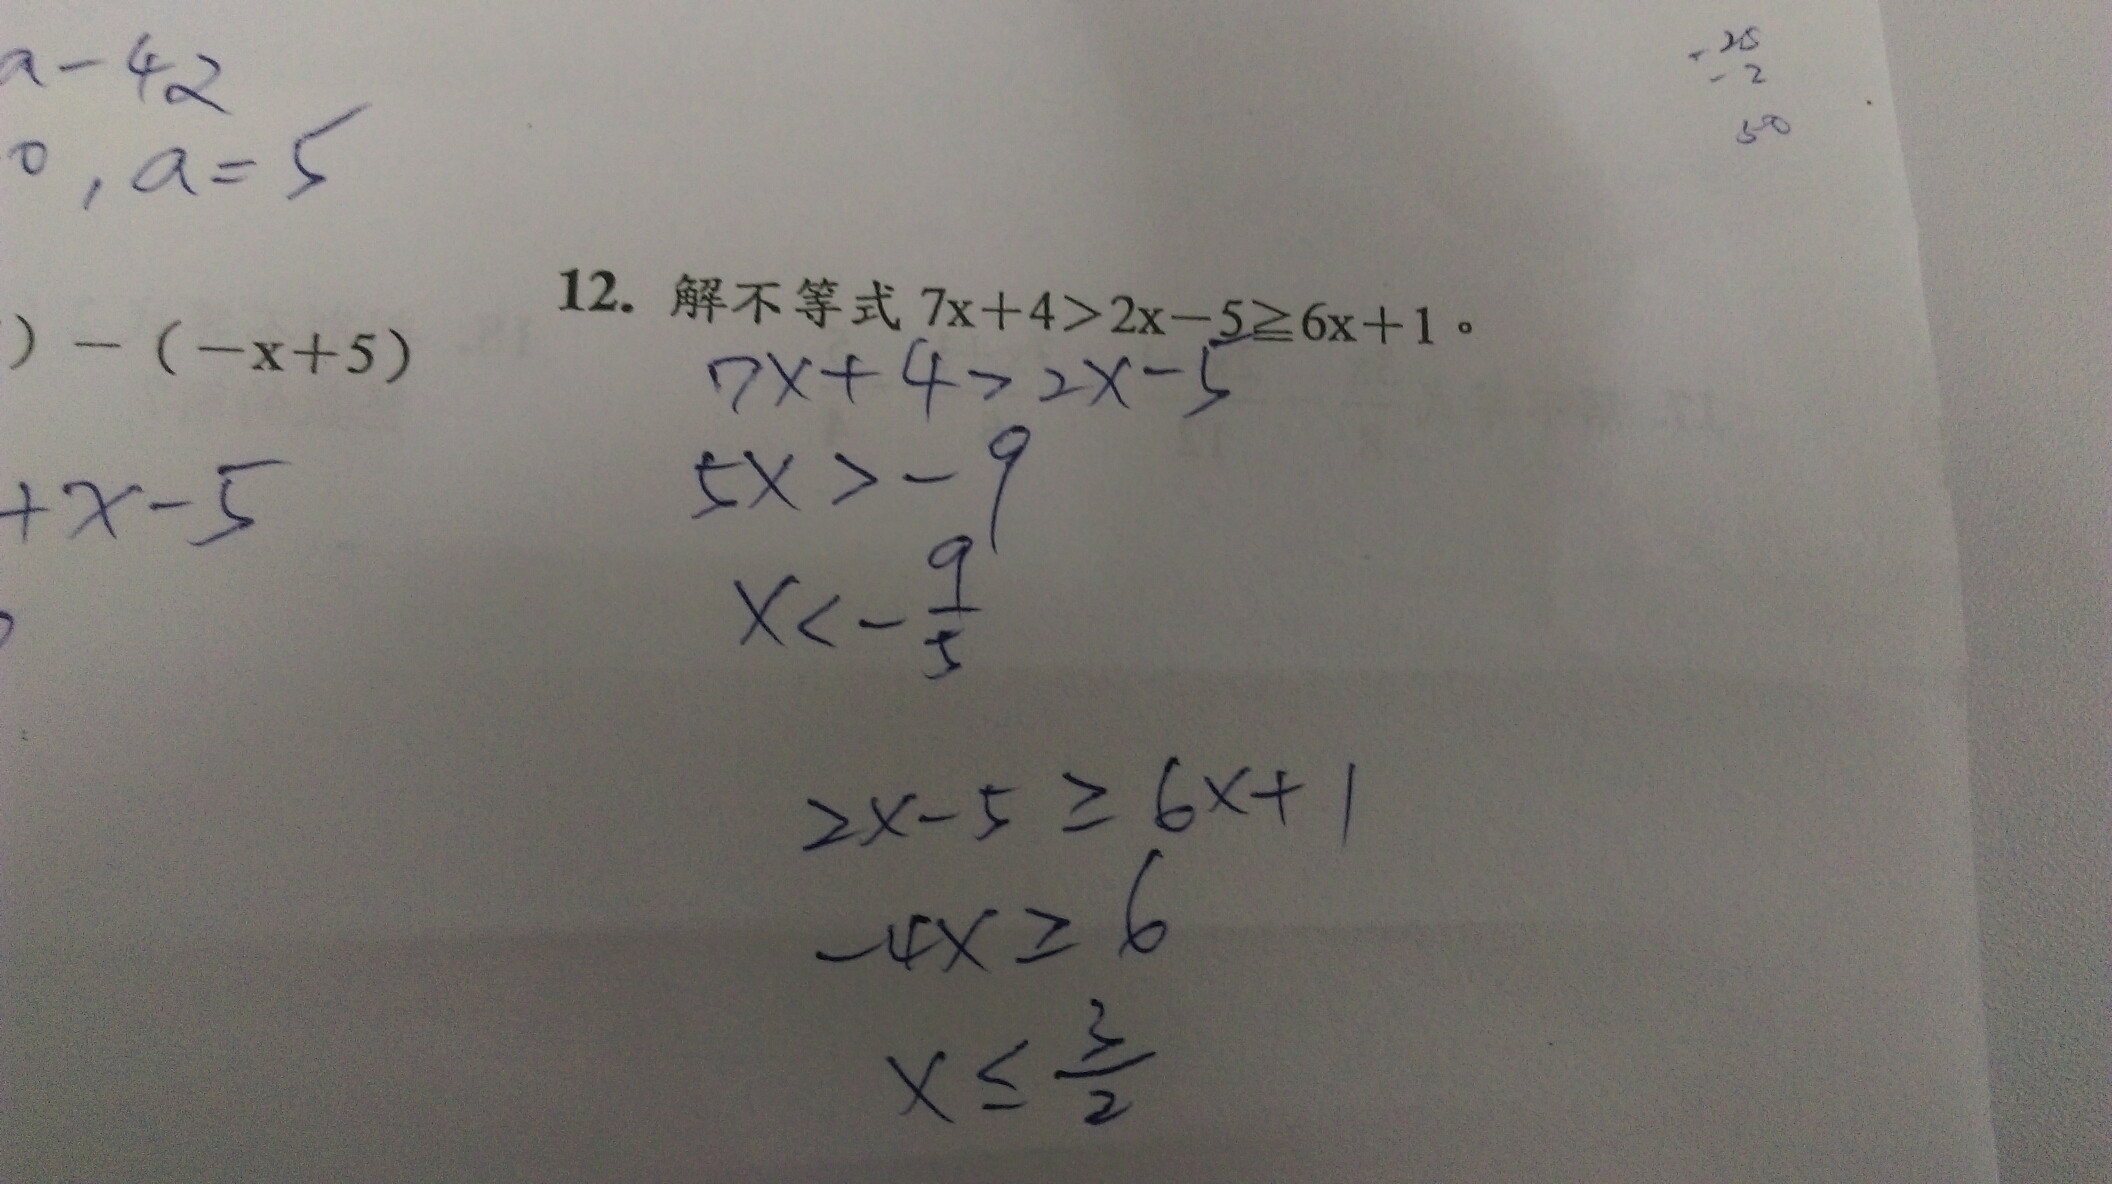 a-42
0,a=5
-25
-2
50
)-(-x+5)
+x-5
12. 解不等式 7x+4>2x-5≧6x+1。
7x+4>2x-5
5x>-9
x<-9/5
2x-5≥6x+1
-4x≥6
x≤3/2